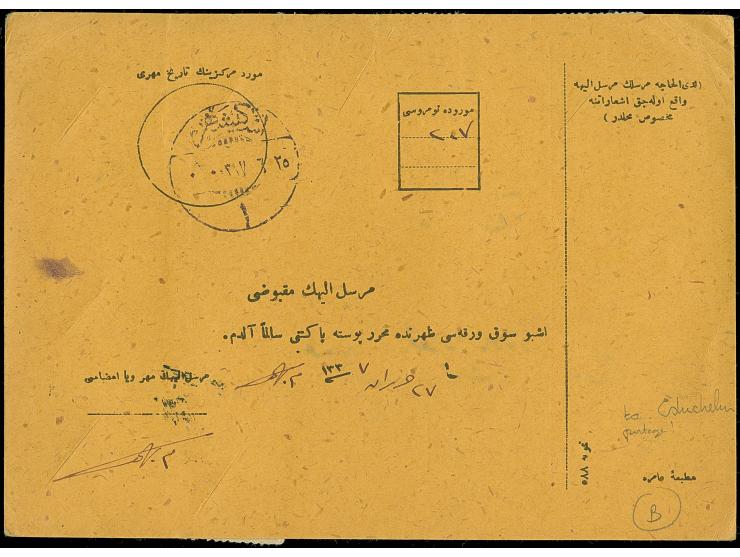 مورد مركزينك تاريخ مهرى
موروده نومروسى
٢٤٧
(لدى الحاجه مرسلك مرسل اليهه
واقع اوله جق اشعاراتنه
مخصوص محلدر)
٢٥
مرسل اليهك مقبوضى
اشبو سوق ورقه‌سى ظهرنده محرر پوسته پاكتى سالماً آلدم.
٢٧ حزيران ١٣٣٧
مرسل اليهك مهر ويا امضاسى
to
portage!
نمونه ٥٨٨
مطبعهٔ عامره
B